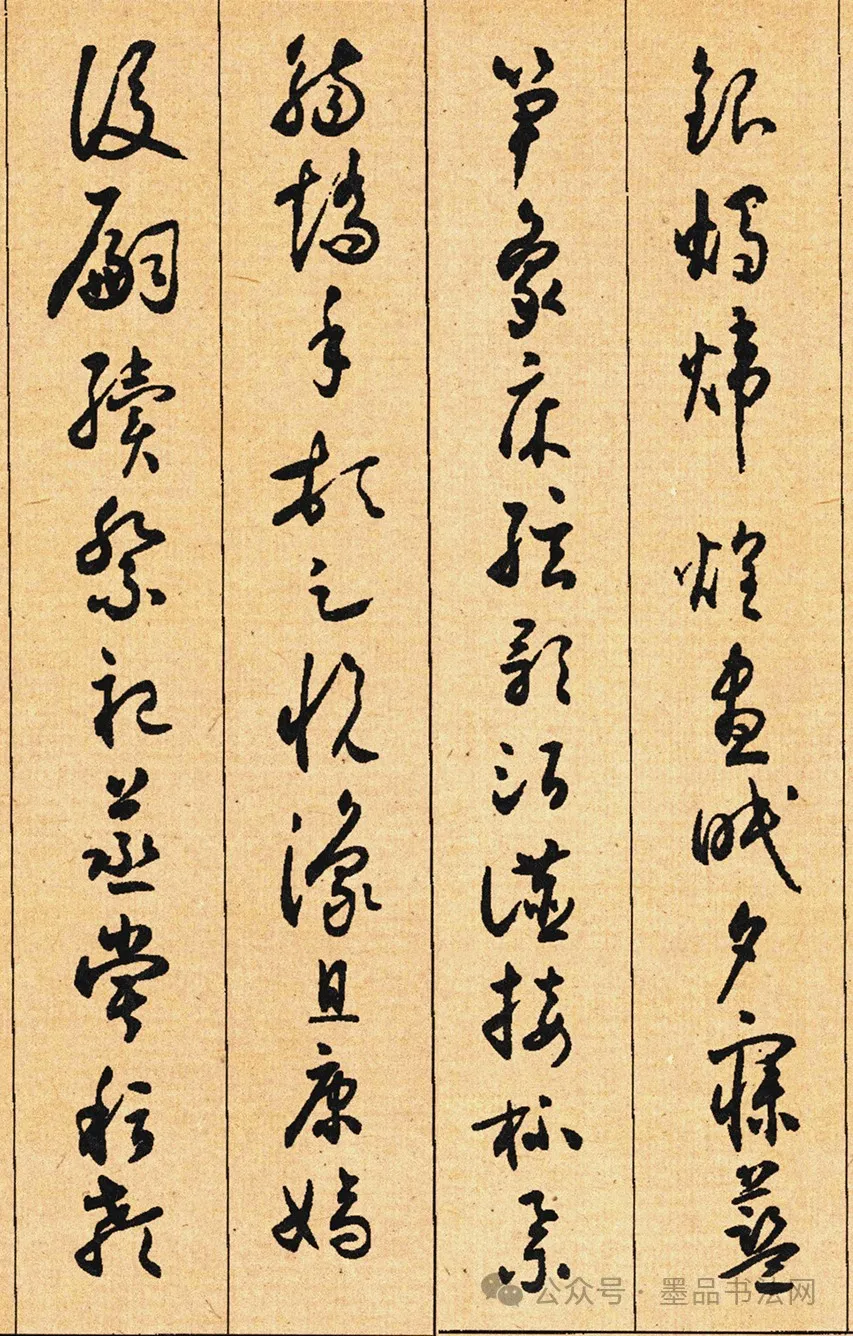 銀燭煒煌晝眠夕寐藍
笋象床弦歌酒讌接杯舉
觴矯手頓足悅豫且康嫡
後嗣續祭祀蒸嘗稽顙
公众号·墨品书法网